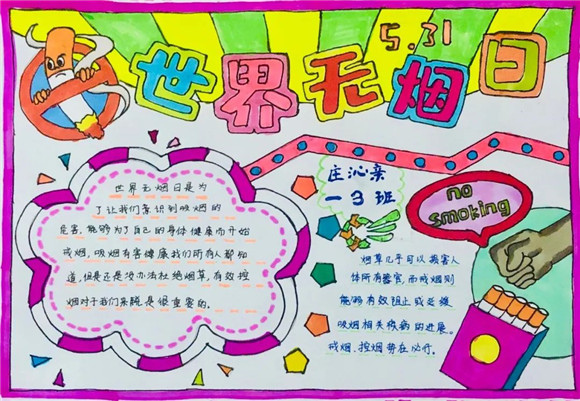 世界无烟日
5.31
世界无烟日是为
了让我们意识到吸烟的
危害,能够为了自己的身体健康而开始
戒烟,吸烟有害健康我们所有人都知
道,但是还是没办法杜绝烟草,有效控
烟对于我们来说是很重要的。
庄沁亲
一3班
no
smoking
烟草几乎可以损害人
体所有器官,而戒烟则
能够有效阻止或延缓
吸烟相关疾病的进展。
戒烟、控烟势在必行。